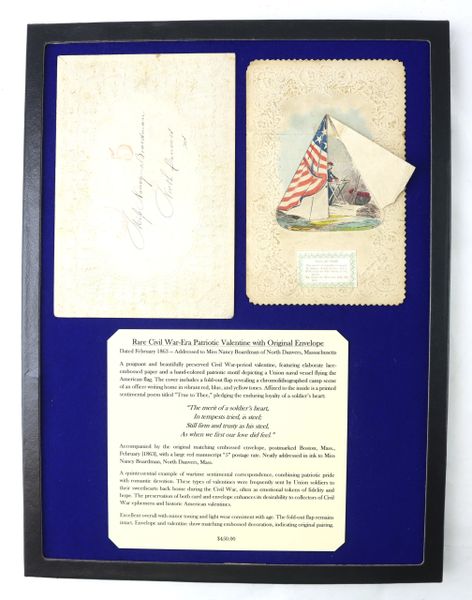 Miss Nancy Boardman
North Danvers
Rare Civil War-Era Patriotic Valentine with Original Envelope
Dated February 1863 – Addressed to Miss Nancy Boardman of North Danvers, Massachusetts
A poignant and beautifully preserved Civil War-period valentine, featuring elaborate lace-
embossed paper and a hand-colored patriotic motif depicting a Union naval vessel flying the
American flag. The cover includes a fold-out flap revealing a chromolithographed camp scene
of an officer writing home in vibrant red, blue, and yellow tones. Affixed to the inside is a printed
sentimental poem titled "True to Thee," pledging the enduring loyalty of a soldier's heart.
"The merit of a soldier's heart,
In tempests tried, is steel;
Still firm and trusty as his steel,
As when we first our love did feel."
Accompanied by the original matching embossed envelope, postmarked Boston, Mass.,
February [1863], with a large red manuscript "5" postage rate. Neatly addressed in ink to Miss
Nancy Boardman, North Danvers, Mass.
A quintessential example of wartime sentimental correspondence, combining patriotic pride
with romantic devotion. These types of valentines were frequently sent by Union soldiers to
their sweethearts back home during the Civil War, often as emotional tokens of fidelity and
hope. The preservation of both card and envelope enhances its desirability to collectors of Civil
War ephemera and historic American valentines.
Excellent overall with minor toning and light wear consistent with age. The fold-out flap remains
intact. Envelope and valentine show matching embossed decoration, indicating original pairing.
$450.00